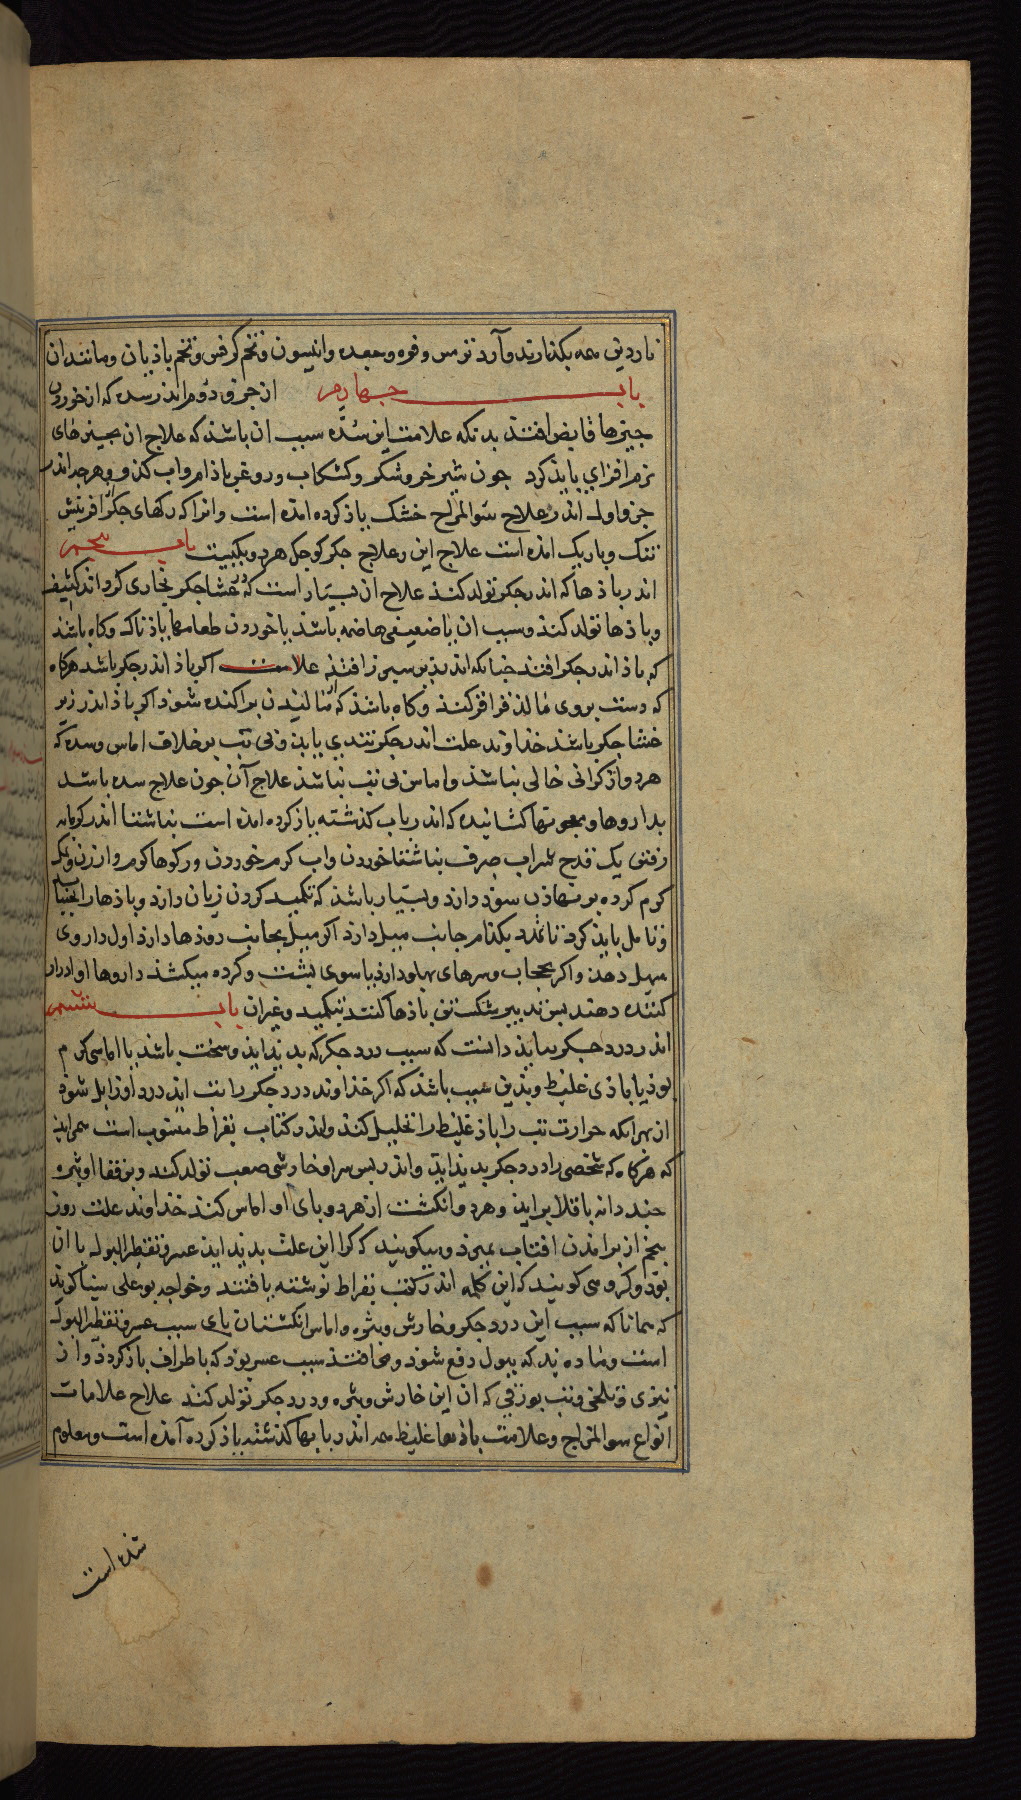 ناردین همه بکدازند وآرد ترمس وفوه وجعده وانیسون وتخم کرفس وتخم باذیان ومانندان
باب جهارم از جزو دوم اندر سده که از خوردن
جیزها قابض افتد بدانکه علامت این سده سبب ان باشد که علاج ان بجیزهای
نرم افزای باید کرد جون شیر خر وشکر وکشکاب وروغن باذام واب کدو وهرجه اندر
جزو اول اندر علاج سوالمزاج خشک یاذ کرده امذه است وانرا که رکهای جکر از افرینش
تنک وباریک امذه است علاج این وعلاج جکر کوجک هردو یکیست باب بنجم
اندر باذها که اندر جکر تولد کند علاج ان بسیار است که در غشا جکر بخاری کرد اند کثیف
وباذها تولد کند وسبب ان یا ضعیفی هاضمه باشد یا خوردن طعامها باذناک وکاه باشد
که باذ اندر جکر افتد جنانکه اندرین سپرز افتد علامت اکر باذ اندر جکر باشد هرکاه
که دست بروی مالند قراقر کند وکاه باشد که از مالیدن براکنده شود اکر باذ اندر زیر
غشا جکر باشد خذاوند علت اندر جکر تمددی یابد وبی تب برخلاف اماس وسده که
هردو از کرانی خالی نباشد واماس بی تب نباشد علاج آن جون علاج سده باشد
بداروها ومعجونها کشاینده که اندر باب کذشته یاذ کرده امذه است بناشتا اندر کرمابه
رفتن یک قدح شراب صرف بناشتا خوردن واب کرم خوردن ورکوها کرم وارزن ونمک
کرم کرده برنهاذن سوذ دارد وبسیار باشد که تکمید کردن زیان دارد وباذها را بجنباند
وتامل باید کرد تا ماده بکدام جانب میل دارد اکر میل بجانب روذها دارد اول داروی
مسهل دهند واکر بحجاب وسرهای بهلو دارد یا سوی بشت وکرده میکشد داروها ادرار
کننده دهند بس تدبیر شکستن باذها کنند بتکمید وغیران باب ششم
اندر درد جکر بباید دانست که سبب درد جکر که بدید اید وسخت باشد یا اماسی کرم
بود یا باذی غلیظ وبدین سبب باشد که اکر خذاوند درد جکر را تب اید درد او زایل شوذ
از بهرانکه حرارت تب را باذ غلیظ را تحلیل کند واندر کتاب بقراط منسوب است همی اید
که هرکاه که شخصی را درد جکر بدید اید واندر بس سر او خارشی صعب تولد کند وبرقفا او بثره
جند دانه باقلا براید وهردو انکشت از هردو بای او اماس کند خذاوند علت روز
بنجم از برامدن افتاب بمیرد ومیکویند که کرا این علت بدید اید عسر وتقطیر البول با ان
بود وکروهی کویند که این کلمه اندر کتب بقراط نوشته یافتند وخواجه بوعلی سینا کوید
که همانا که سبب این درد جکر وخارش وبثره واماس انکشتان بای سبب عسر وتقطیر البول
است وماده بد که ببول دفع شود ومحافتد سبب عسر بود که باطراف باز کردد وان
تیزی وتلخی وتب بورقی که ان این خارش وبثره ودرد جکر تولد کند علاج علامات
انواع سوالمزاج وعلامت باذها غلیظ همه اندر بابها کذشته یاذ کرده آمذه است ومعلوم
شذه است